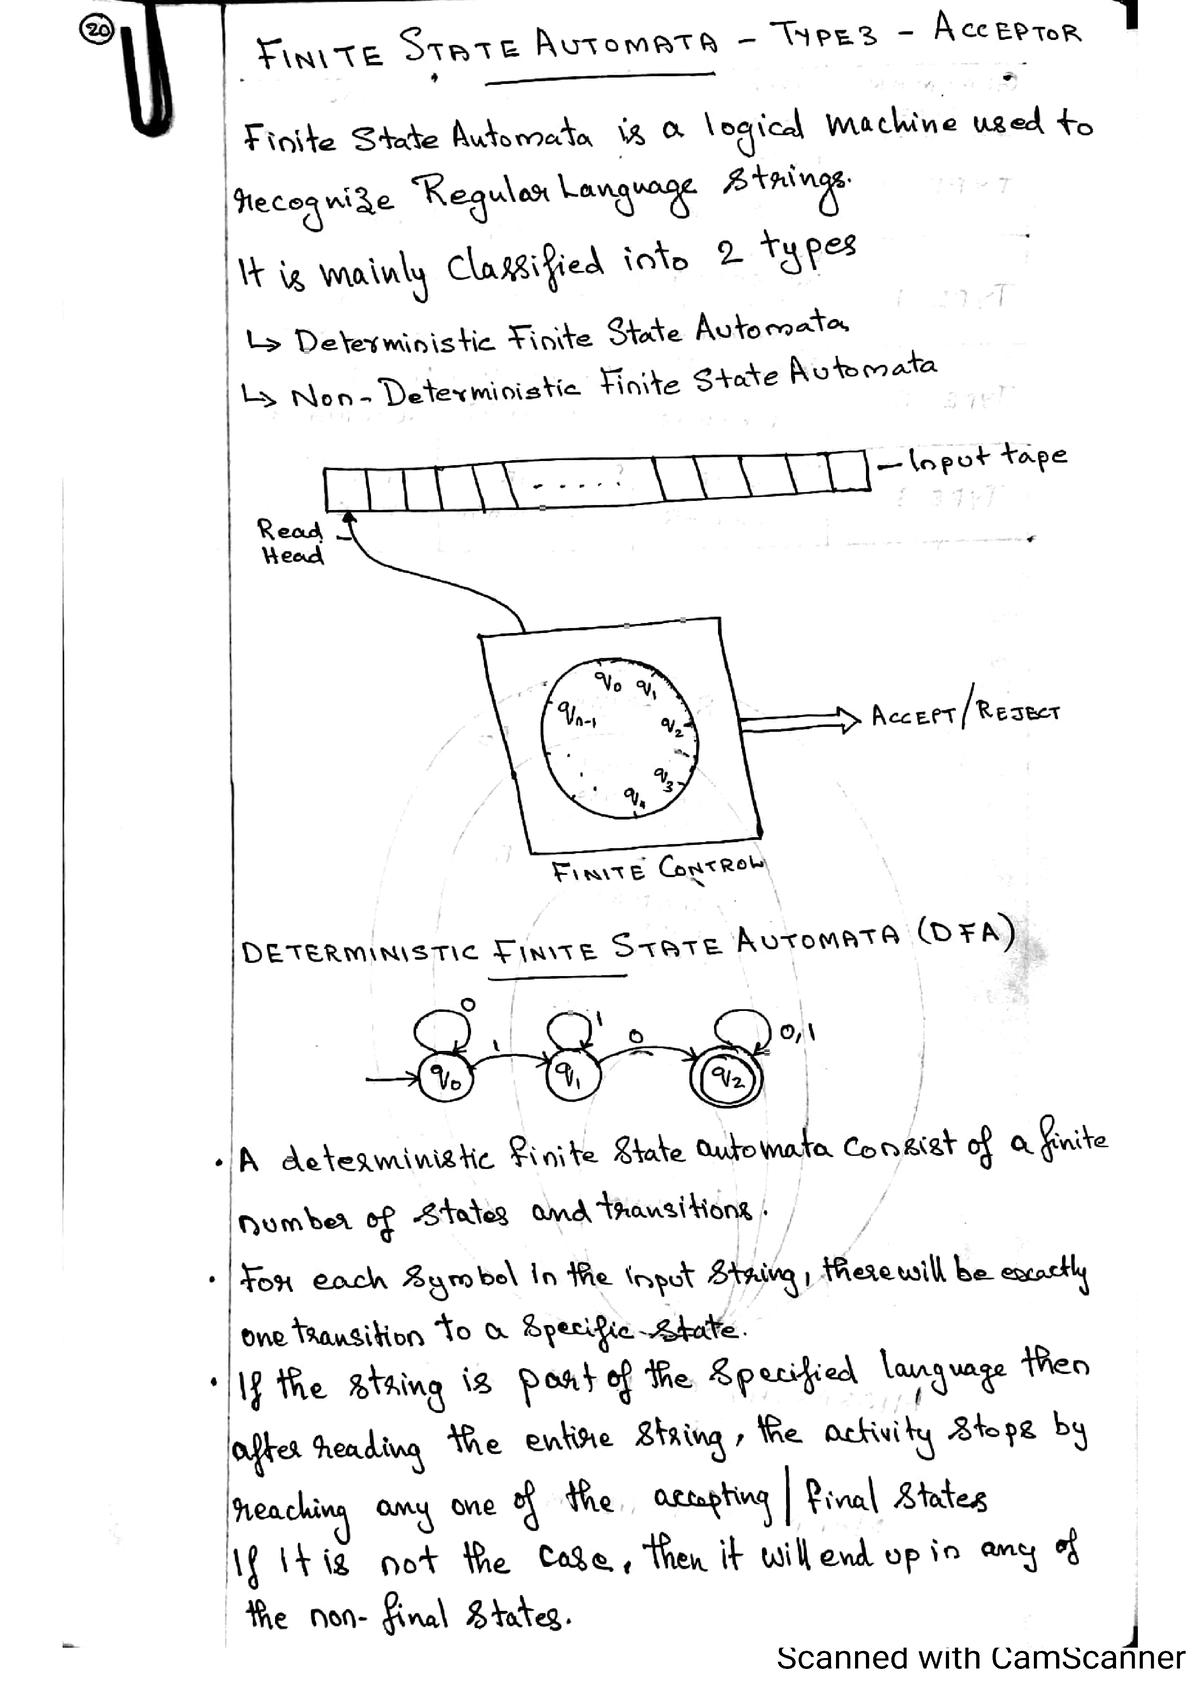 20
FINITE STATE AUTOMATA - TYPE3 - ACCEPTOR
Finite State Automata is a logical machine used to
recognize Regular Language strings.
It is mainly classified into 2 types
↳ Deterministic Finite State Automata
↳ Non-Deterministic Finite State Automata
- Input tape
Read
Head
q0 q1
qn-1
q2
q3
q4
ACCEPT/REJECT
FINITE CONTROL
DETERMINISTIC FINITE STATE AUTOMATA (DFA)
0 1 1 0 0,1
q0 q1 q2
• A deterministic finite state automata consist of a finite
number of states and transitions.
• For each symbol in the input string, there will be exactly
one transition to a specific state.
• If the string is part of the specified language then
after reading the entire string, the activity stops by
reaching any one of the accepting/final states
If it is not the case, then it will end up in any of
the non-final states.
Scanned with CamScanner